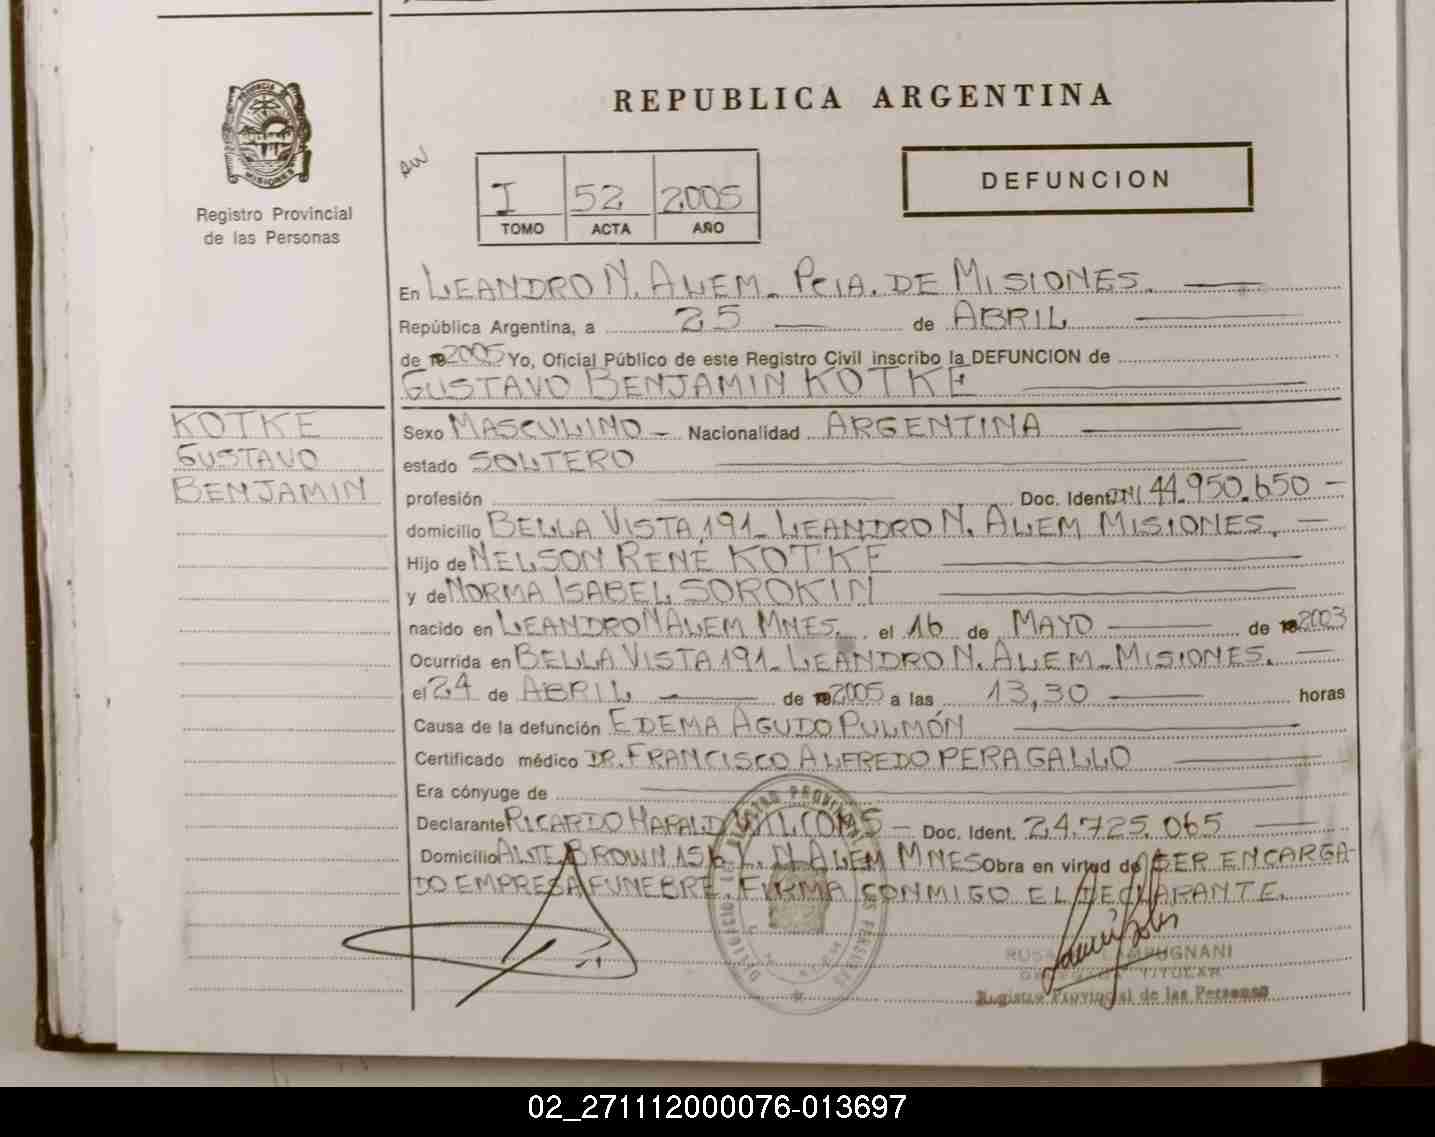 REPUBLICA ARGENTINA
PROVINCIA DE
MISIONES
Registro Provincial
de las Personas
I 52 2005
TOMO ACTA AÑO
DEFUNCION
En LEANDRO N. ALEM_ PCIA. DE MISIONES.
República Argentina, a 25 de ABRIL
de 2005 Yo, Oficial Público de este Registro Civil inscribo la DEFUNCION de
GUSTAVO BENJAMIN KOTKE
KOTKE
GUSTAVO
BENJAMIN
Sexo MASCULINO Nacionalidad ARGENTINA
estado SOLTERO
profesión Doc. Ident. DNI 44.950.650
domicilio BELLA VISTA 191_ LEANDRO N. ALEM MISIONES.
Hijo de NELSON RENE KOTKE
y de NORMA ISABEL SOROKIN
nacido en LEANDRO N ALEM MNES. el 16 de MAYO de 2003
Ocurrida en BELLA VISTA 191_ LEANDRO N. ALEM_MISIONES.
el 24 de ABRIL de 2005 a las 13,30 horas
Causa de la defunción EDEMA AGUDO PULMÓN
Certificado médico DR. FRANCISCO ALFREDO PERAGALLO
Era cónyuge de
Declarante RICARDO HARALD Doc. Ident. 24.725.065
Domicilio ALTE BROWN 156 L. N ALEM MNES Obra en virtud de SER ENCARGA-
DO EMPRESA FUNEBRE. FIRMA CONMIGO EL DECLARANTE.
TITULAR
Registro Provincial de las Personas
02_271112000076-013697